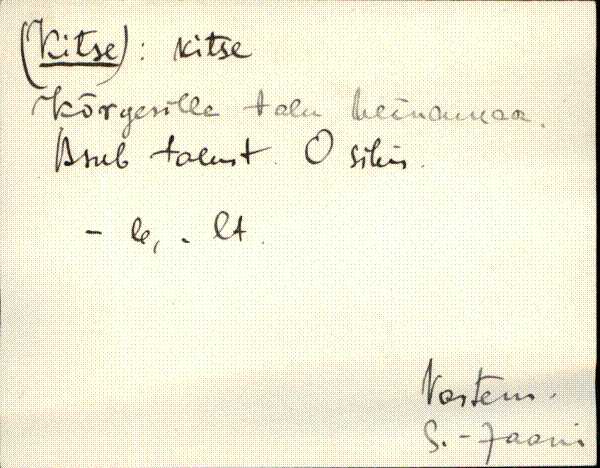 (Kitse): kitse
Kõrgesilla talu heinamaa.
Asub talust O sihis.
- le, - lt.
Vastem.
S.-Jaani